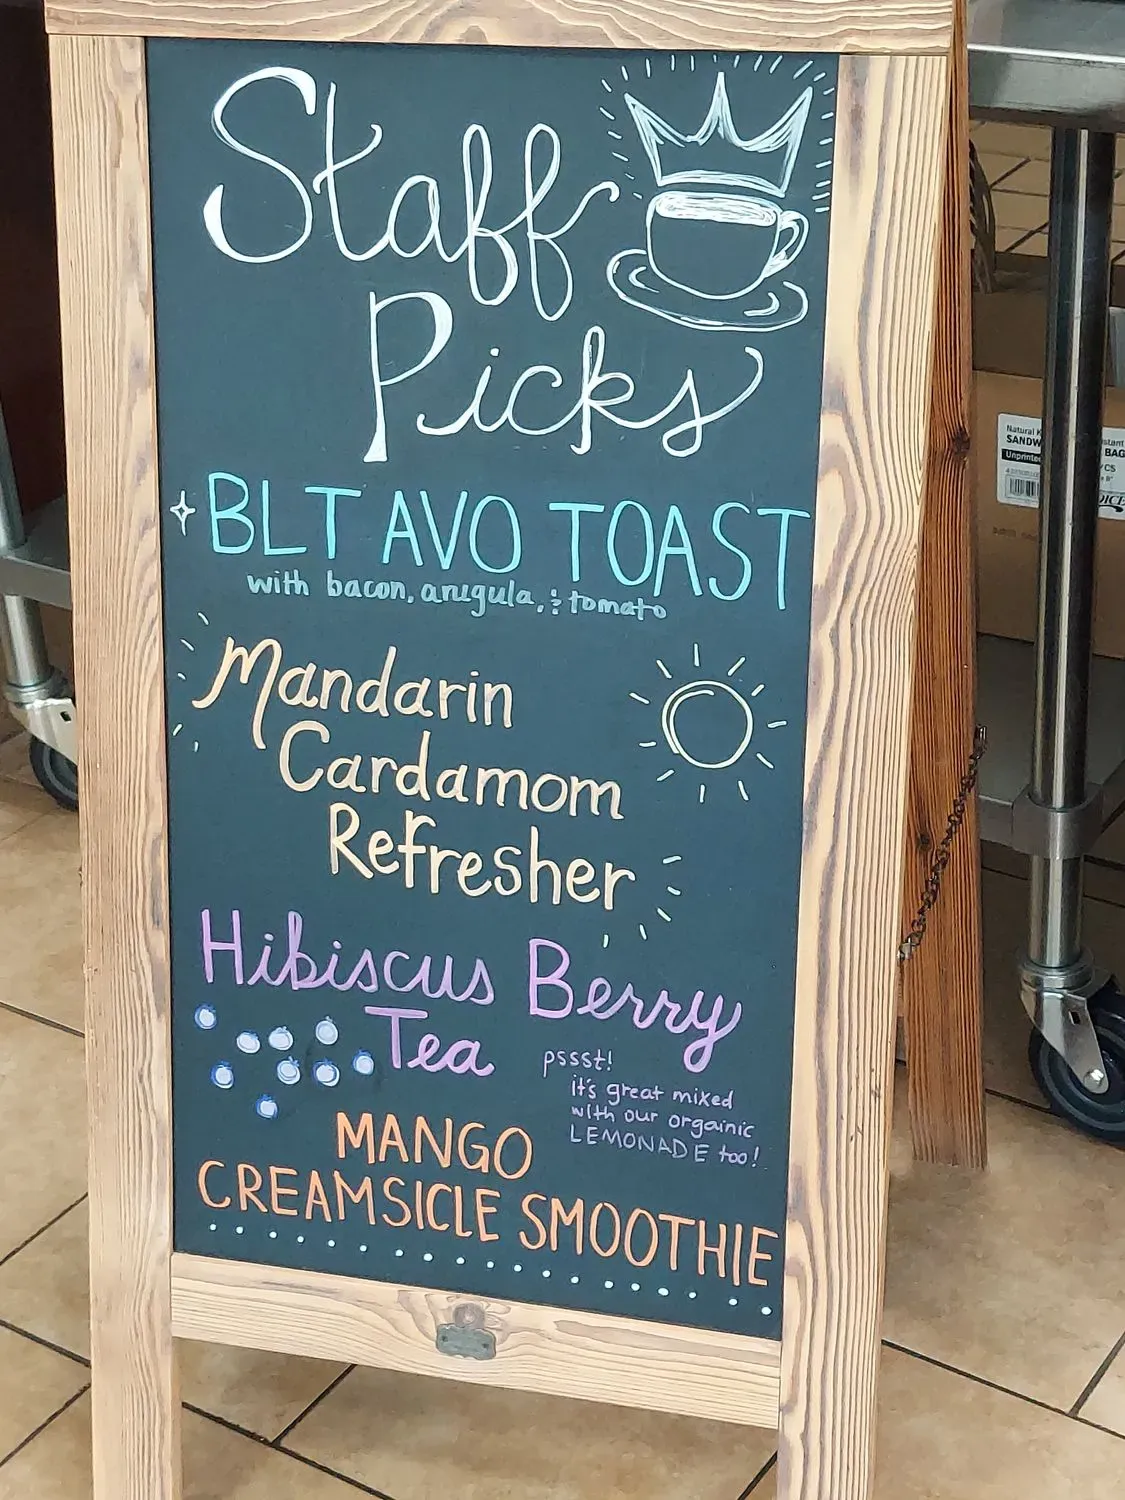 Staff
Picks
BLT AVO TOAST
with bacon, arugula, & tomato
Mandarin
Cardamom
Refresher
Hibiscus Berry
Tea
pssst!
it's great mixed
with our orgainic
LEMONADE too!
MANGO
CREAMSICLE SMOOTHIE
Natural
SANDW
BAG
Unprinte